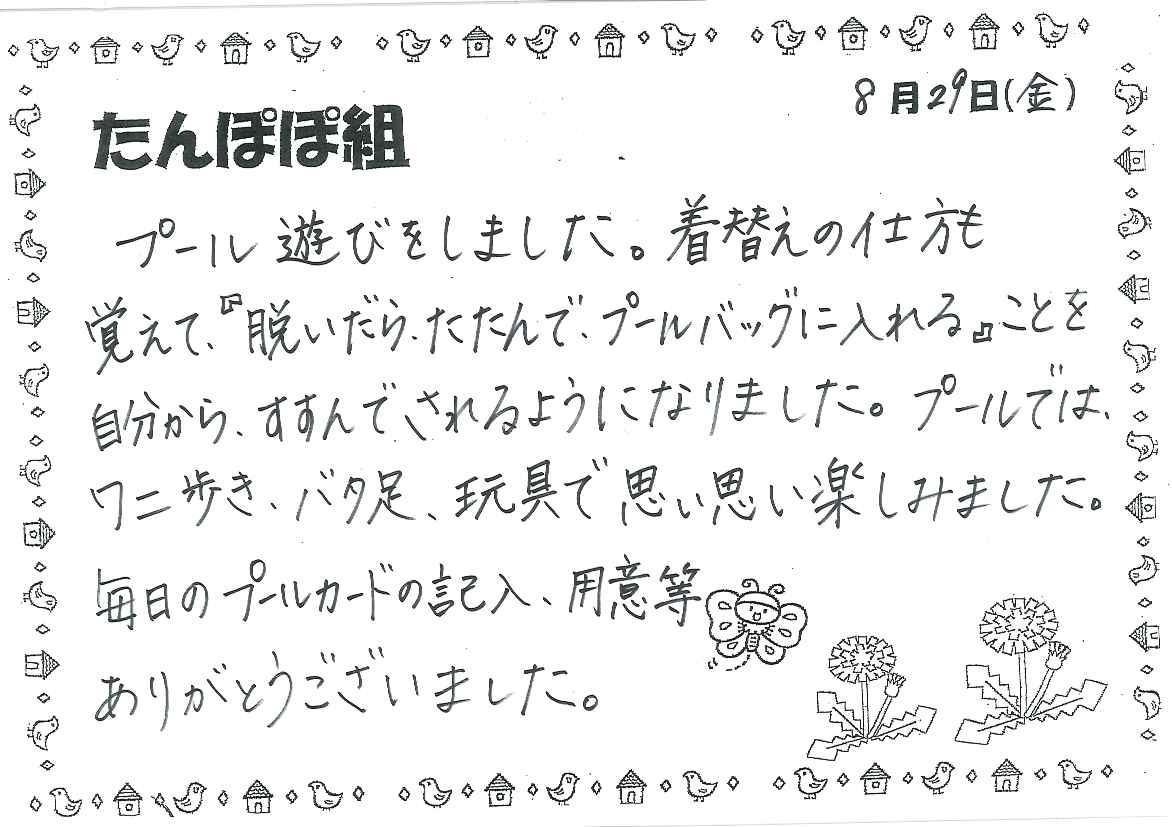 8月29日(金)
たんぽぽ組
プール遊びをしました。着替えの仕方も
覚えて、『脱いだら、たたんで、プールバッグに入れる』ことを
自分から、すすんでされるようになりました。プールでは、
ワニ歩き、バタ足、玩具で思い思い楽しみました。
毎日のプールカードの記入、用意等
ありがとうございました。